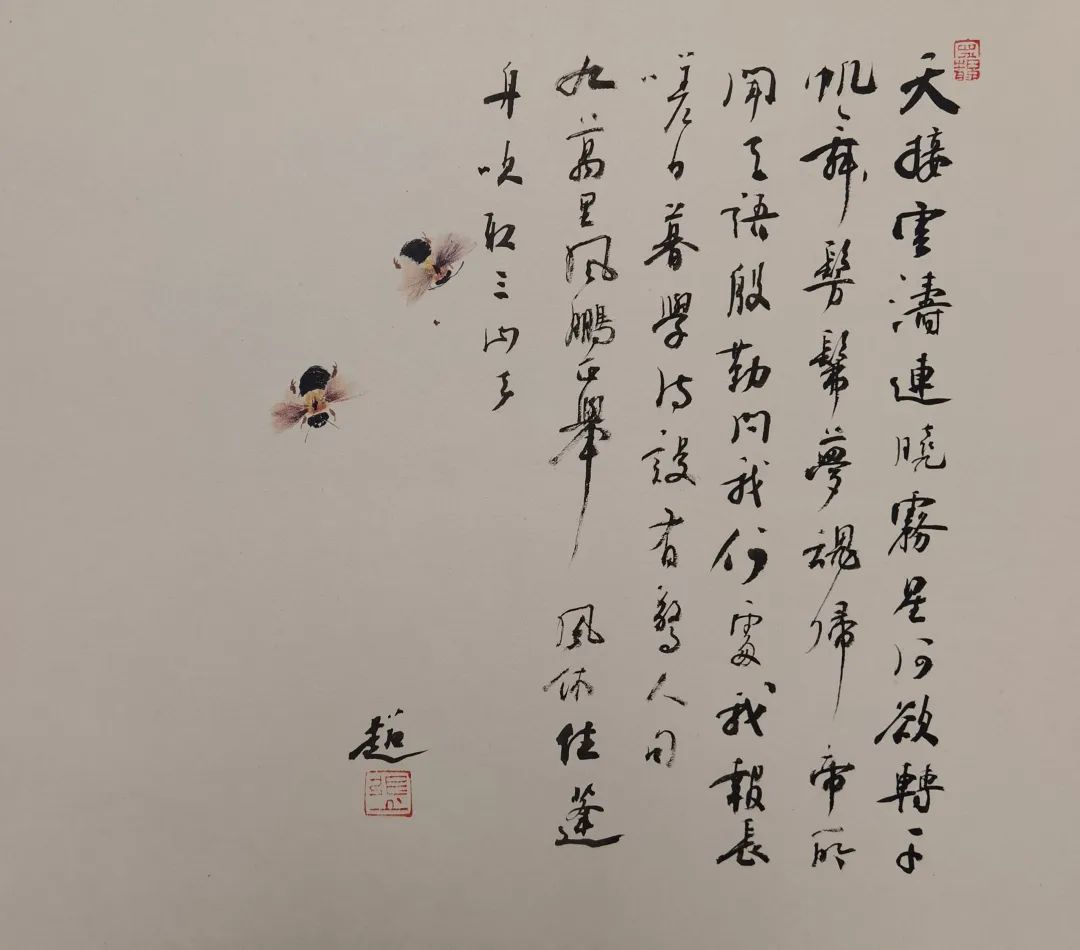 天接雲濤連曉霧星河欲轉千
帆舞髣髴夢魂歸帝所
聞天語殷勤問我何處我報長
嗟日暮學詩謾有驚人句
九萬里風鵬正舉 風休住蓬
舟吹取三山去
超